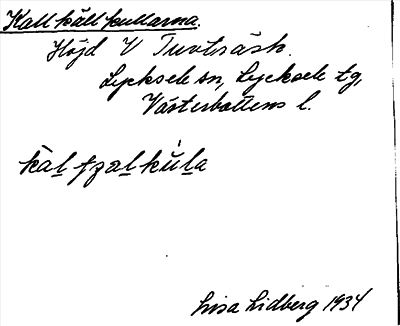 Kallkällkullarna.
Höjd V Tuvträsk.
Lycksele sn, Lycksele tg,
Västerbottens l.
Lisa Lidberg 1934